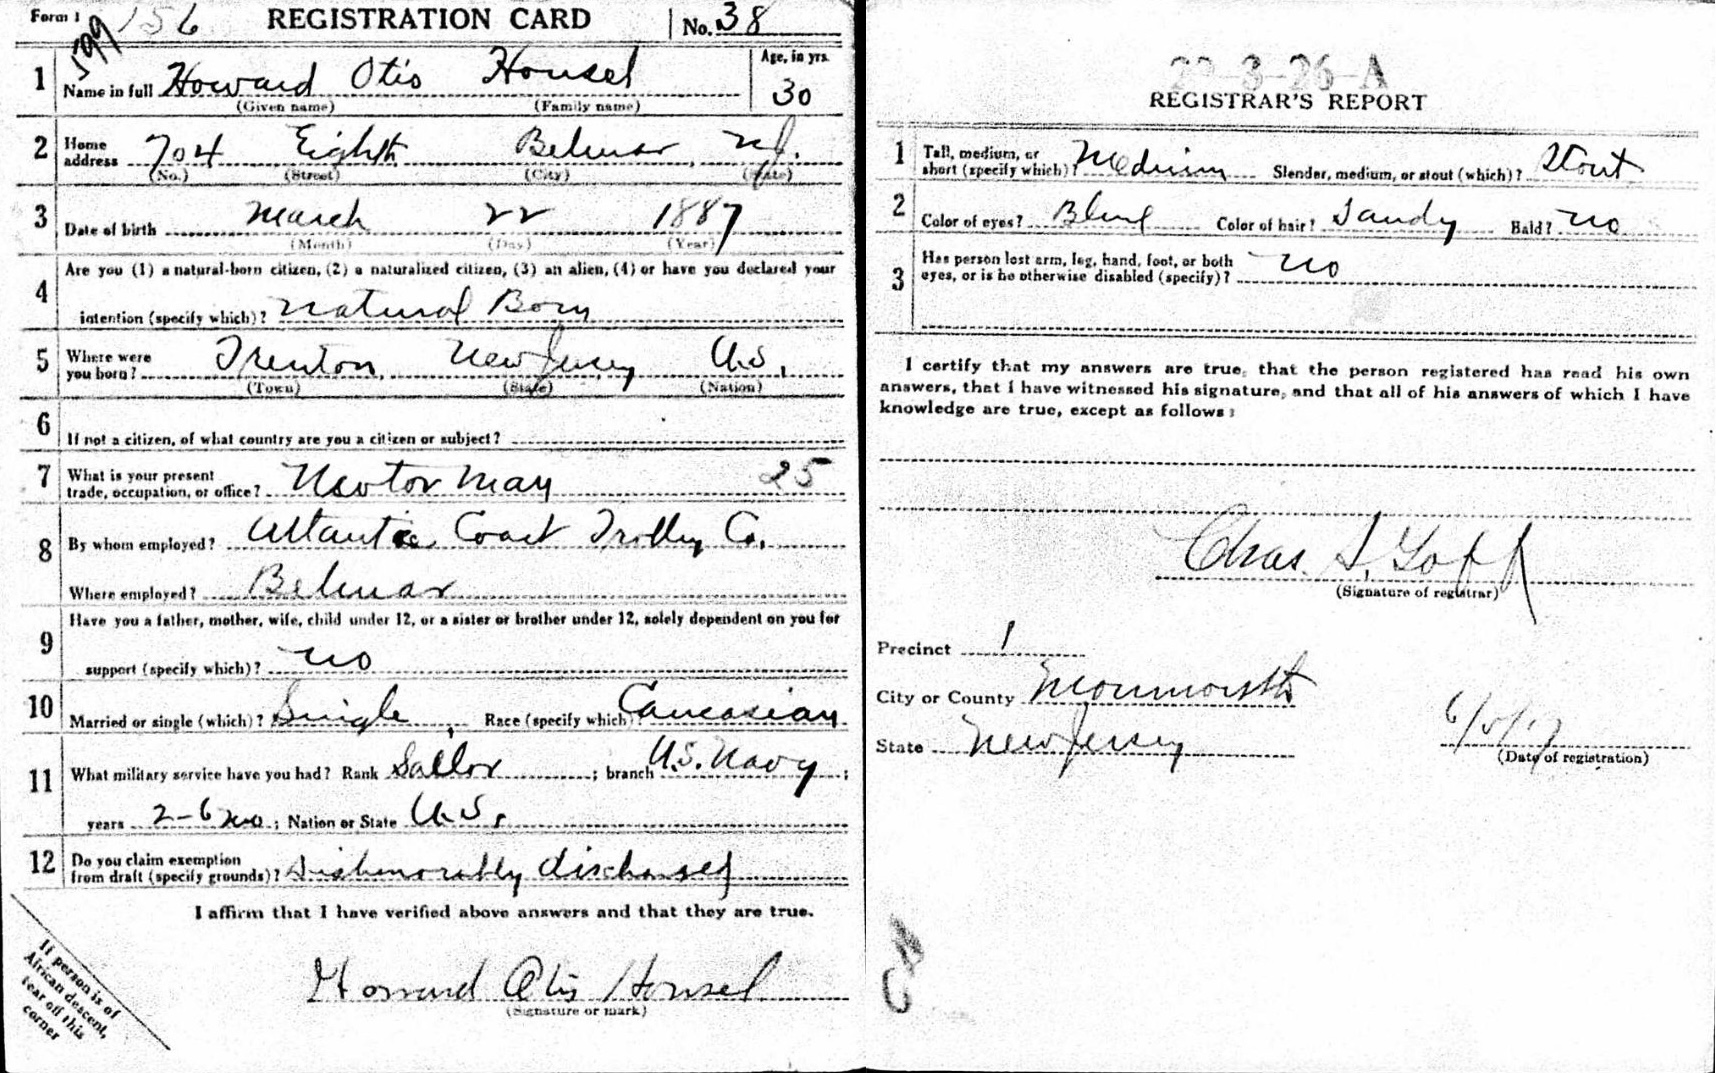 Form 1 599 156 REGISTRATION CARD No. 38
1 Name in full Howard Otis Housel Age, in yrs. 30
(Given name) (Family name)
2 Home address 704 Eighth Belmar, N.J.
(No.) (Street) (City) (State)
3 Date of birth March 22 1887
(Month) (Day) (Year)
4 Are you (1) a natural-born citizen, (2) a naturalized citizen, (3) an alien, (4) or have you declared your
intention (specify which)? Natural Born
5 Where were you born? Trenton, New Jersey U.S.
(Town) (State) (Nation)
6 If not a citizen, of what country are you a citizen or subject?
7 What is your present trade, occupation, or office? Motor Man 25
8 By whom employed? Atlantic Coast Trolley Co.
Where employed? Belmar
9 Have you a father, mother, wife, child under 12, or a sister or brother under 12, solely dependent on you for
support (specify which)? No
10 Married or single (which)? Single, Race (specify which)? Caucasian
11 What military service have you had? Rank Sailor ; branch U.S. Navy ;
years 2-6 mo ; Nation or State U.S.
12 Do you claim exemption from draft (specify grounds)? Dishonorably discharged
I affirm that I have verified above answers and that they are true.
Howard Otis Housel
(Signature or mark)
If person is of
African descent,
tear off this
corner
REGISTRAR'S REPORT
1 Tall, medium, or short (specify which)? Medium Slender, medium, or stout (which)? Stout
2 Color of eyes? Blue Color of hair? Sandy Bald? No
3 Has person lost arm, leg, hand, foot, or both eyes, or is he otherwise disabled (specify)? No
I certify that my answers are true, that the person registered has read his own
answers, that I have witnessed his signature, and that all of his answers of which I have
knowledge are true, except as follows:
Chas. Goff
(Signature of registrar)
Precinct 1
City or County Monmouth
State New Jersey 6/5/17
(Date of registration)